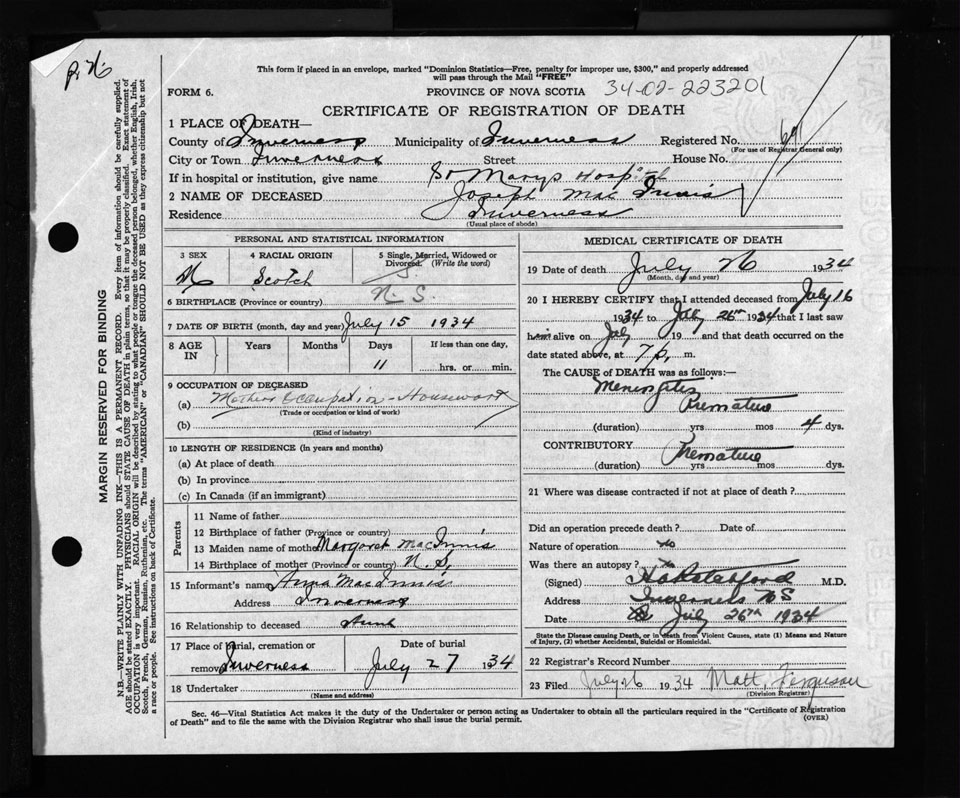 P. N.
This form if placed in an envelope, marked "Dominion Statistics—Free, penalty for improper use, $300," and properly addressed
will pass through the Mail "FREE"
FORM 6.
PROVINCE OF NOVA SCOTIA 34-02-223201
CERTIFICATE OF REGISTRATION OF DEATH
1 PLACE OF DEATH—
County of Inverness Municipality of Inverness Registered No. 691
(For use of Registrar General only)
City or Town Inverness Street House No.
If in hospital or institution, give name St Marys Hospital
2 NAME OF DECEASED Joseph Mac Innis
Residence Inverness
(Usual place of abode)
PERSONAL AND STATISTICAL INFORMATION
3 SEX 4 RACIAL ORIGIN 5 Single, Married, Widowed or Divorced. (Write the word)
M Scotch S
6 BIRTHPLACE (Province or country) N. S.
7 DATE OF BIRTH (month, day and year) July 15 1934
8 AGE IN Years Months Days If less than one day,
11 hrs. or min.
9 OCCUPATION OF DECEASED
(a) Mothers Occupation - Housework
(Trade or occupation or kind of work)
(b)
(Kind of industry)
10 LENGTH OF RESIDENCE (in years and months)
(a) At place of death
(b) In province
(c) In Canada (if an immigrant)
Parents
11 Name of father
12 Birthplace of father (Province or country)
13 Maiden name of mother Margaret MacInnis
14 Birthplace of mother (Province or country) N. S.
15 Informant's name Anna MacInnis
Address Inverness
16 Relationship to deceased Aunt
17 Place of burial, cremation or removal Inverness
Date of burial
July 27 1934
18 Undertaker
(Name and address)
MEDICAL CERTIFICATE OF DEATH
19 Date of death July 26 1934
(Month, day and year)
20 I HEREBY CERTIFY that I attended deceased from July 16
1934 to July 26th 1934 that I last saw
him alive on July 19 and that death occurred on the
date stated above, at 7 p. m.
The CAUSE of DEATH was as follows:—
Meningitis
Premature
(duration) yrs mos 4 dys.
CONTRIBUTORY Premature
(duration) yrs mos dys.
21 Where was disease contracted if not at place of death?
Did an operation precede death? Date of
Nature of operation no
Was there an autopsy? no
(Signed) M.D.
Address Inverness NS
Date July 26th 1934
State the Disease causing Death, or in death from Violent Causes, state (1) Means and Nature
of Injury, (2) whether Accidental, Suicidal or Homicidal.
22 Registrar's Record Number
23 Filed July 26 1934 Matt. Ferguson
(Division Registrar)
Sec. 46—Vital Statistics Act makes it the duty of the Undertaker or person acting as Undertaker to obtain all the particulars required in the "Certificate of Registration
of Death" and to file the same with the Division Registrar who shall issue the burial permit.
(OVER)
MARGIN RESERVED FOR BINDING
N.B.—WRITE PLAINLY WITH UNFADING INK—THIS IS A PERMANENT RECORD. Every item of information should be carefully supplied.
AGE should be stated EXACTLY. PHYSICIANS should STATE CAUSE OF DEATH in plain terms, so that it may be properly classified. Exact statement of
OCCUPATION is very important. RACIAL ORIGIN will be described by stating to what people or tongue the deceased person belonged, whether English, Irish,
Scotch, French, German, Russian, Ruthenian, etc. The terms "AMERICAN" or "CANADIAN" SHOULD NOT BE USED as they express citizenship but not
a race or people. See instructions on back of Certificate.